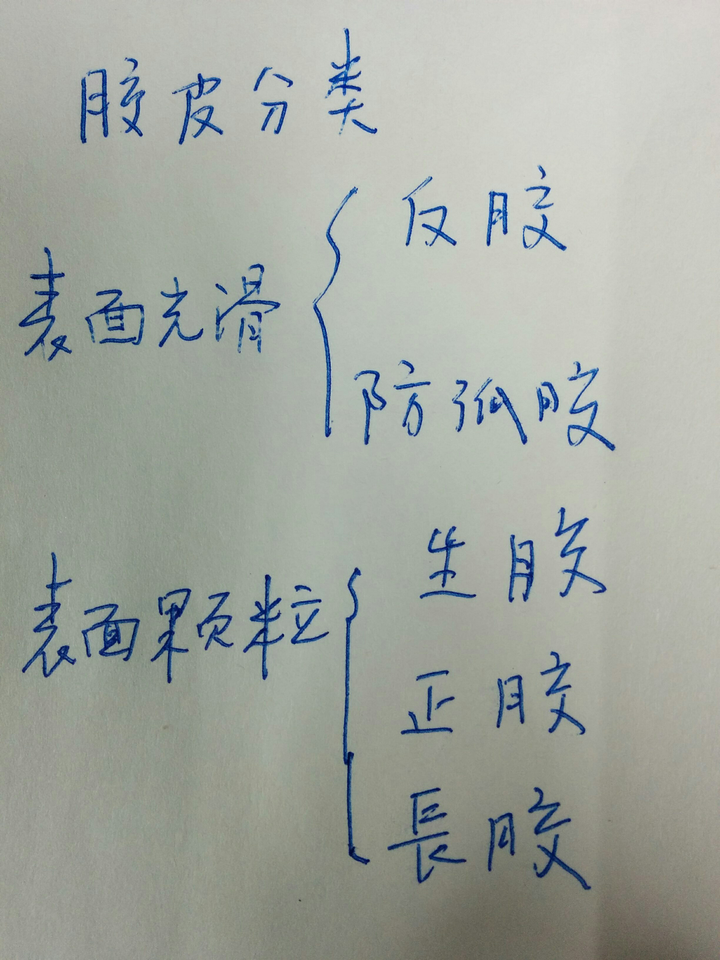 胶皮分类
反胶
表面光滑
防弧胶
生胶
表面颗粒
正胶
長胶